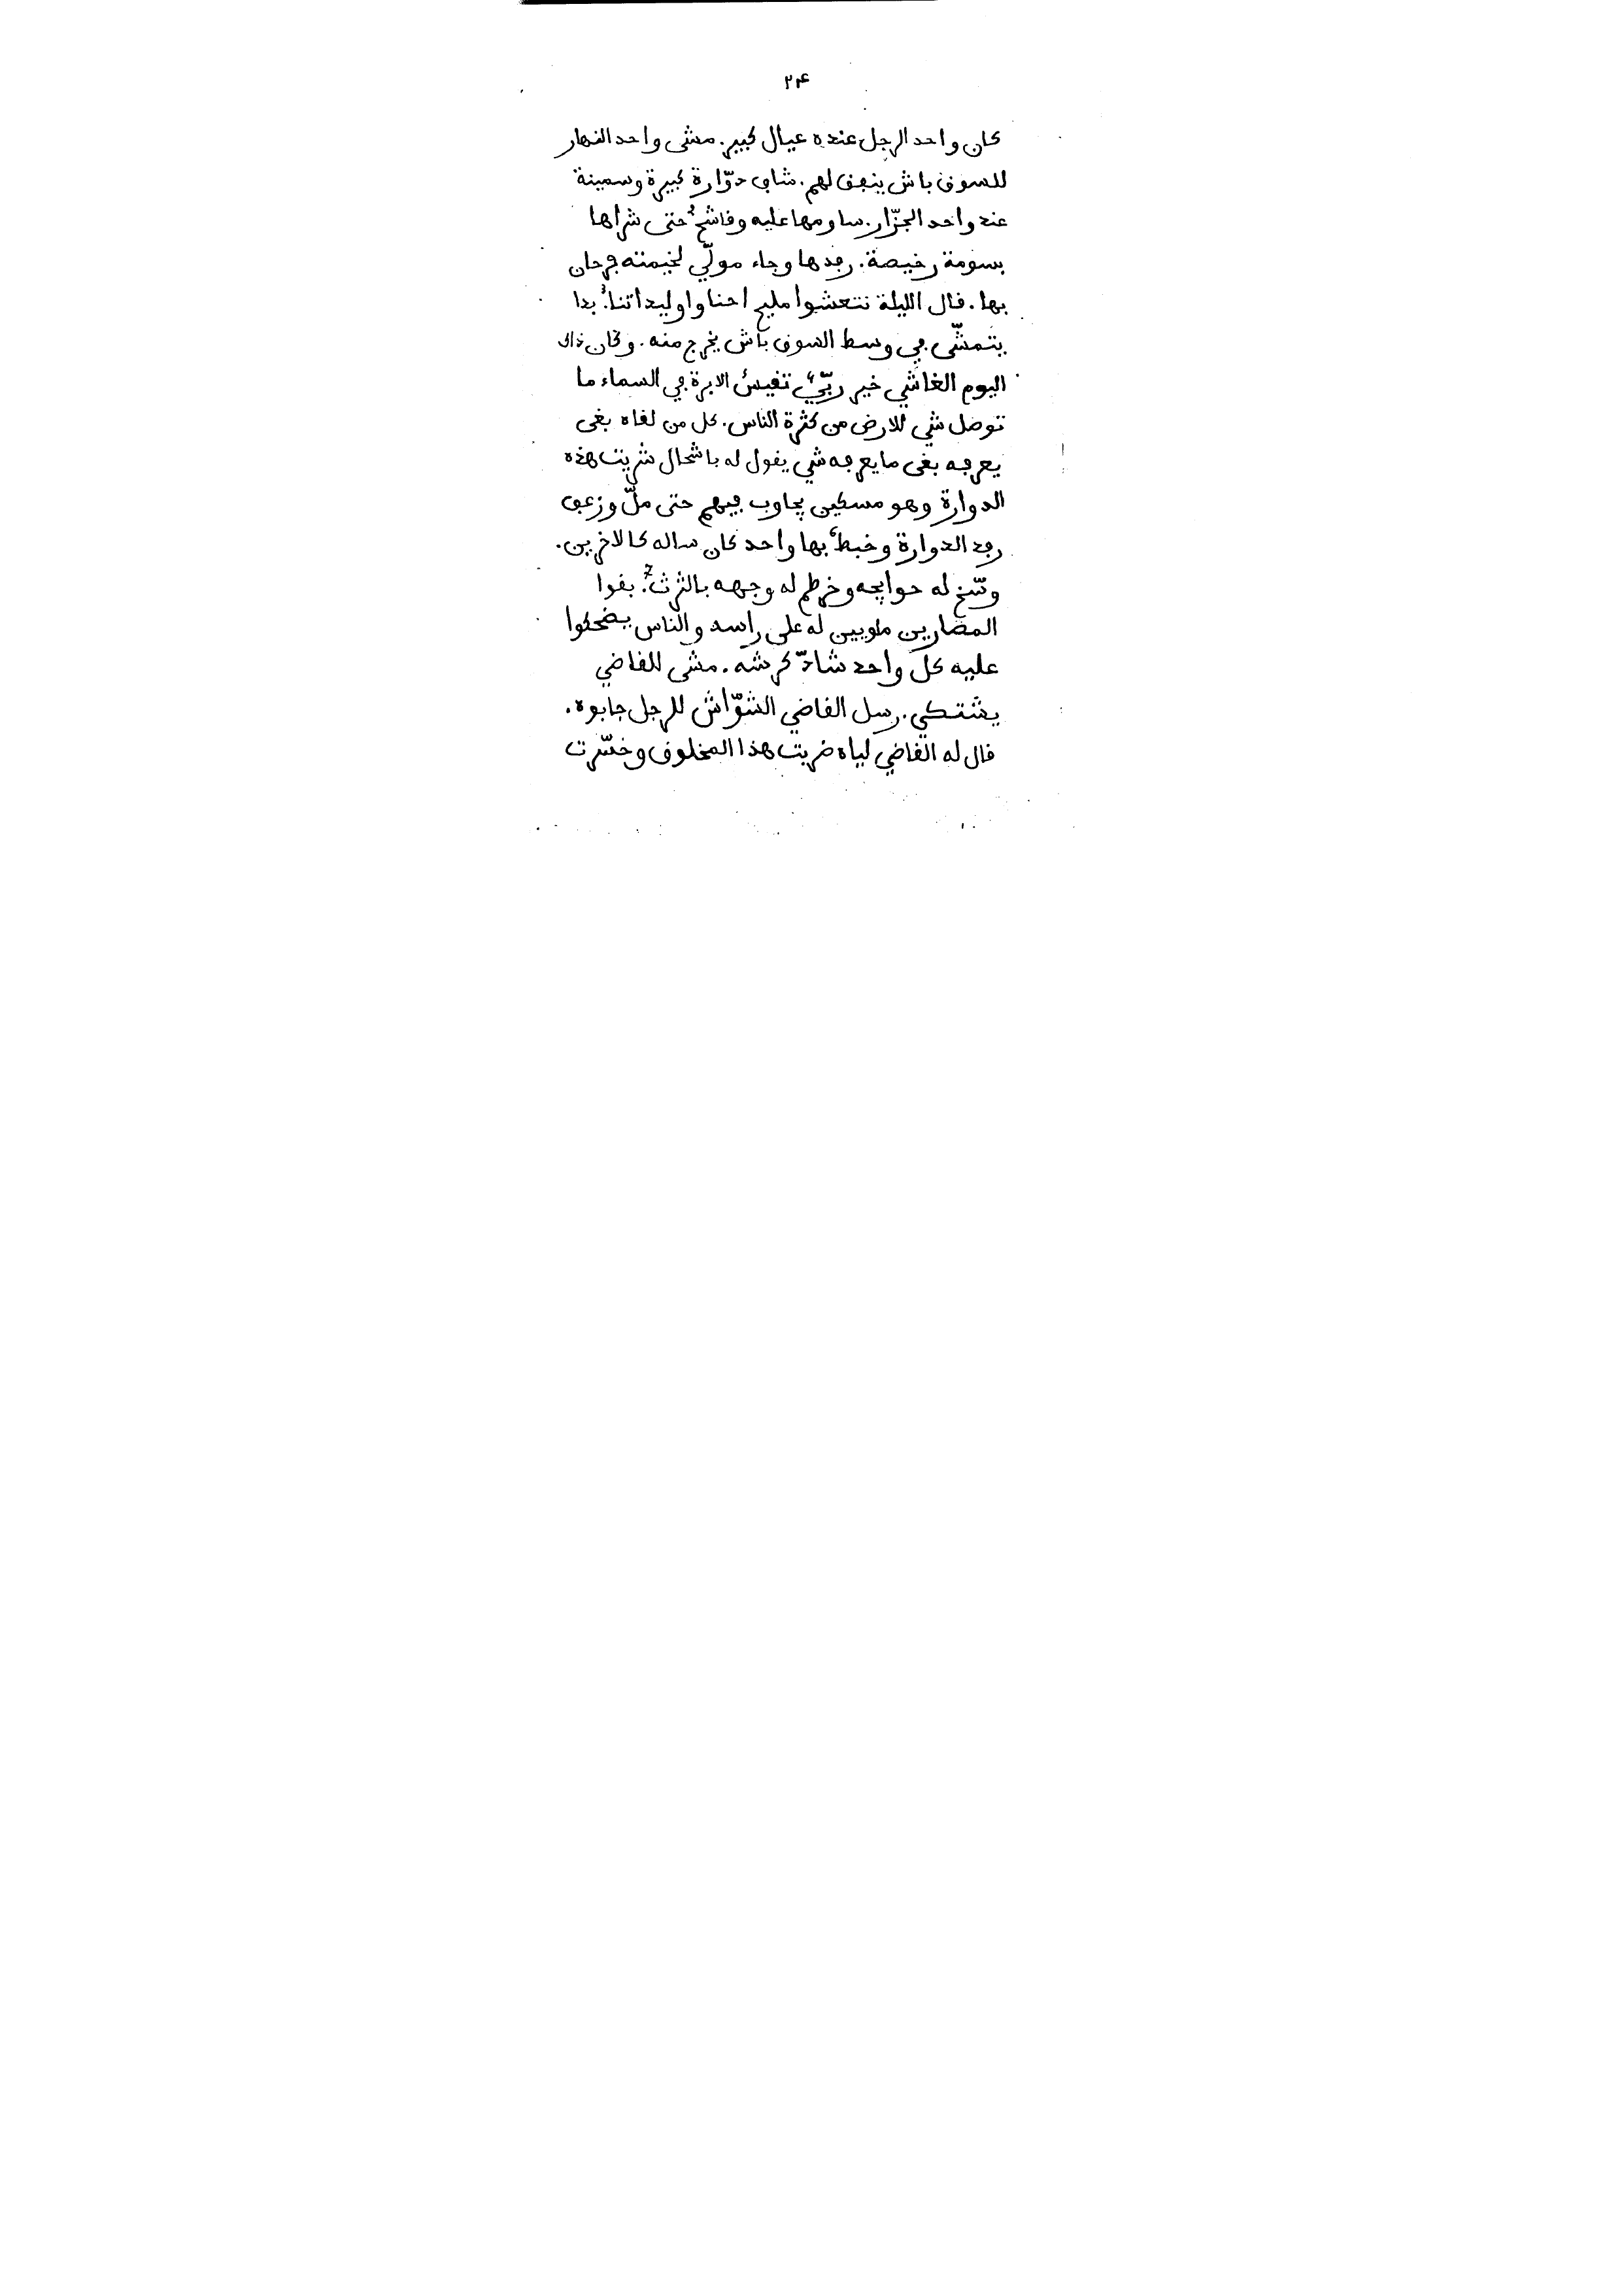 ٢٤
كان واحد الرجل عنده عيال كبير. مشى واحد النهار
للسوق باش ينفق لهم. شاف دوّارة كبيرة وسمينة
عند واحد الجزّار. ساومها عليه وقاشح حتى شراها
بسومة رخيصة. رفدها وجاء مولّي لخيمته فرحان
بها. قال الليلة نتعشوا مليح احنا واوليداتنا. بدا
يتمشّى في وسط السوق باش يخرج منه. وكان ذاك
اليوم الغاشي خير ربّي تقيس الابرة في السماء ما
توصل شي للارض من كثرة الناس. كل من لقاه بغى
يعرفه بغى ما يعرفه شي يقول له باشحال شريت هذه
الدوارة وهو مسكين يجاوب فيهم حتى ملّ وزعف
رفد الدوارة وخبط بها واحد كان ساله كالاخرين.
وسّخ له حوايجه وخرطم له وجهه بالثرث. بقوا
المصارين ملويين له على راسه والناس يضحكوا
عليه كل واحد شادّ كرشه. مشى للقاضي
يشتكي. رسل القاضي الشوّاش للرجل جابوه.
قال له القاضي لياه ضربت هذا المخلوق وخسّرت